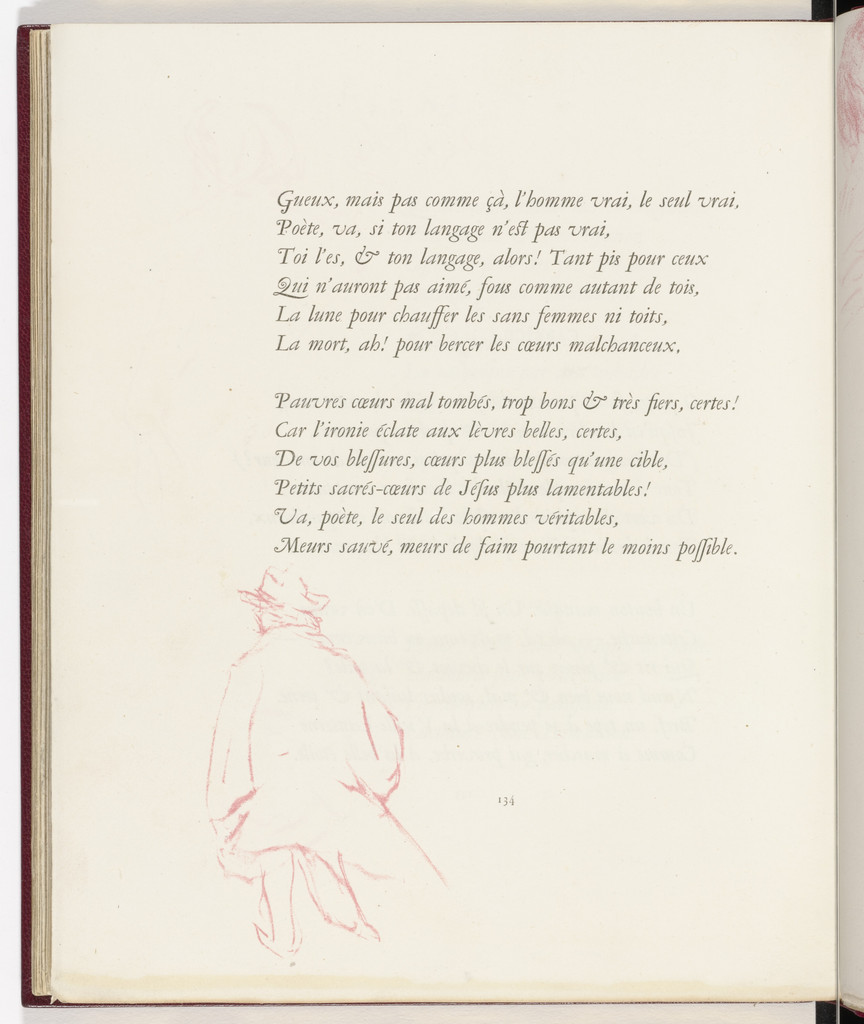 Gueux, mais pas comme çà, l'homme vrai, le seul vrai,
Poète, va, si ton langage n'est pas vrai,
Toi l'es, & ton langage, alors! Tant pis pour ceux
Qui n'auront pas aimé, fous comme autant de tois,
La lune pour chauffer les sans femmes ni toits,
La mort, ah! pour bercer les cœurs malchanceux,
Pauvres cœurs mal tombés, trop bons & très fiers, certes!
Car l'ironie éclate aux lèvres belles, certes,
De vos bleſſures, cœurs plus bleſſés qu'une cible,
Petits sacrés-cœurs de Jéſus plus lamentables!
Va, poète, le seul des hommes véritables,
Meurs sauvé, meurs de faim pourtant le moins poſſible.
134